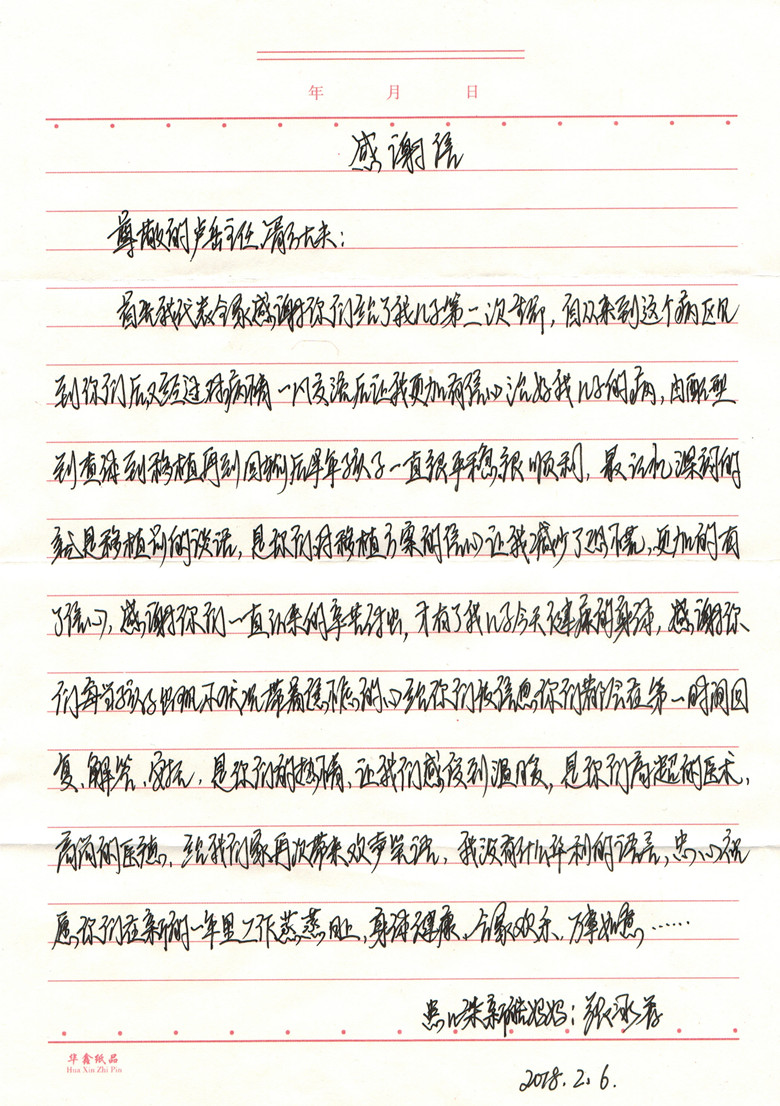 年 月 日
感谢信
尊敬的卢岳主任、滑大夫：
首先我代表全家感谢你们给了我儿子第二次生命，自从来到这个病区见
到你们后又经过对病情一次交流后让我更加有信心治好我儿子的病，由配型
到查体到移植再到回输后半年孩子一直很平稳很顺利，最让我深刻的
就是移植前的谈话，是你们对移植方案的信心让我减少了恐慌，更加的有
了信心，感谢你们一直以来的辛苦付出，才有了我儿子今天健康的身体，感谢你
们每当孩子出现不适带着焦虑的心给你们发信息你们都会在第一时间回
复、解答、安抚，是你们的热情，让我们感受到温暖，是你们高超的医术，
高尚的医德，给我们家再次带来欢声笑语，我没有什么华丽的语言，忠心祝
愿你们在新的一年里工作蒸蒸日上，身体健康、合家欢乐、万事如意……
患儿 新皓妈妈：张
2018.2.6.
华鑫纸品
Hua Xin Zhi Pin